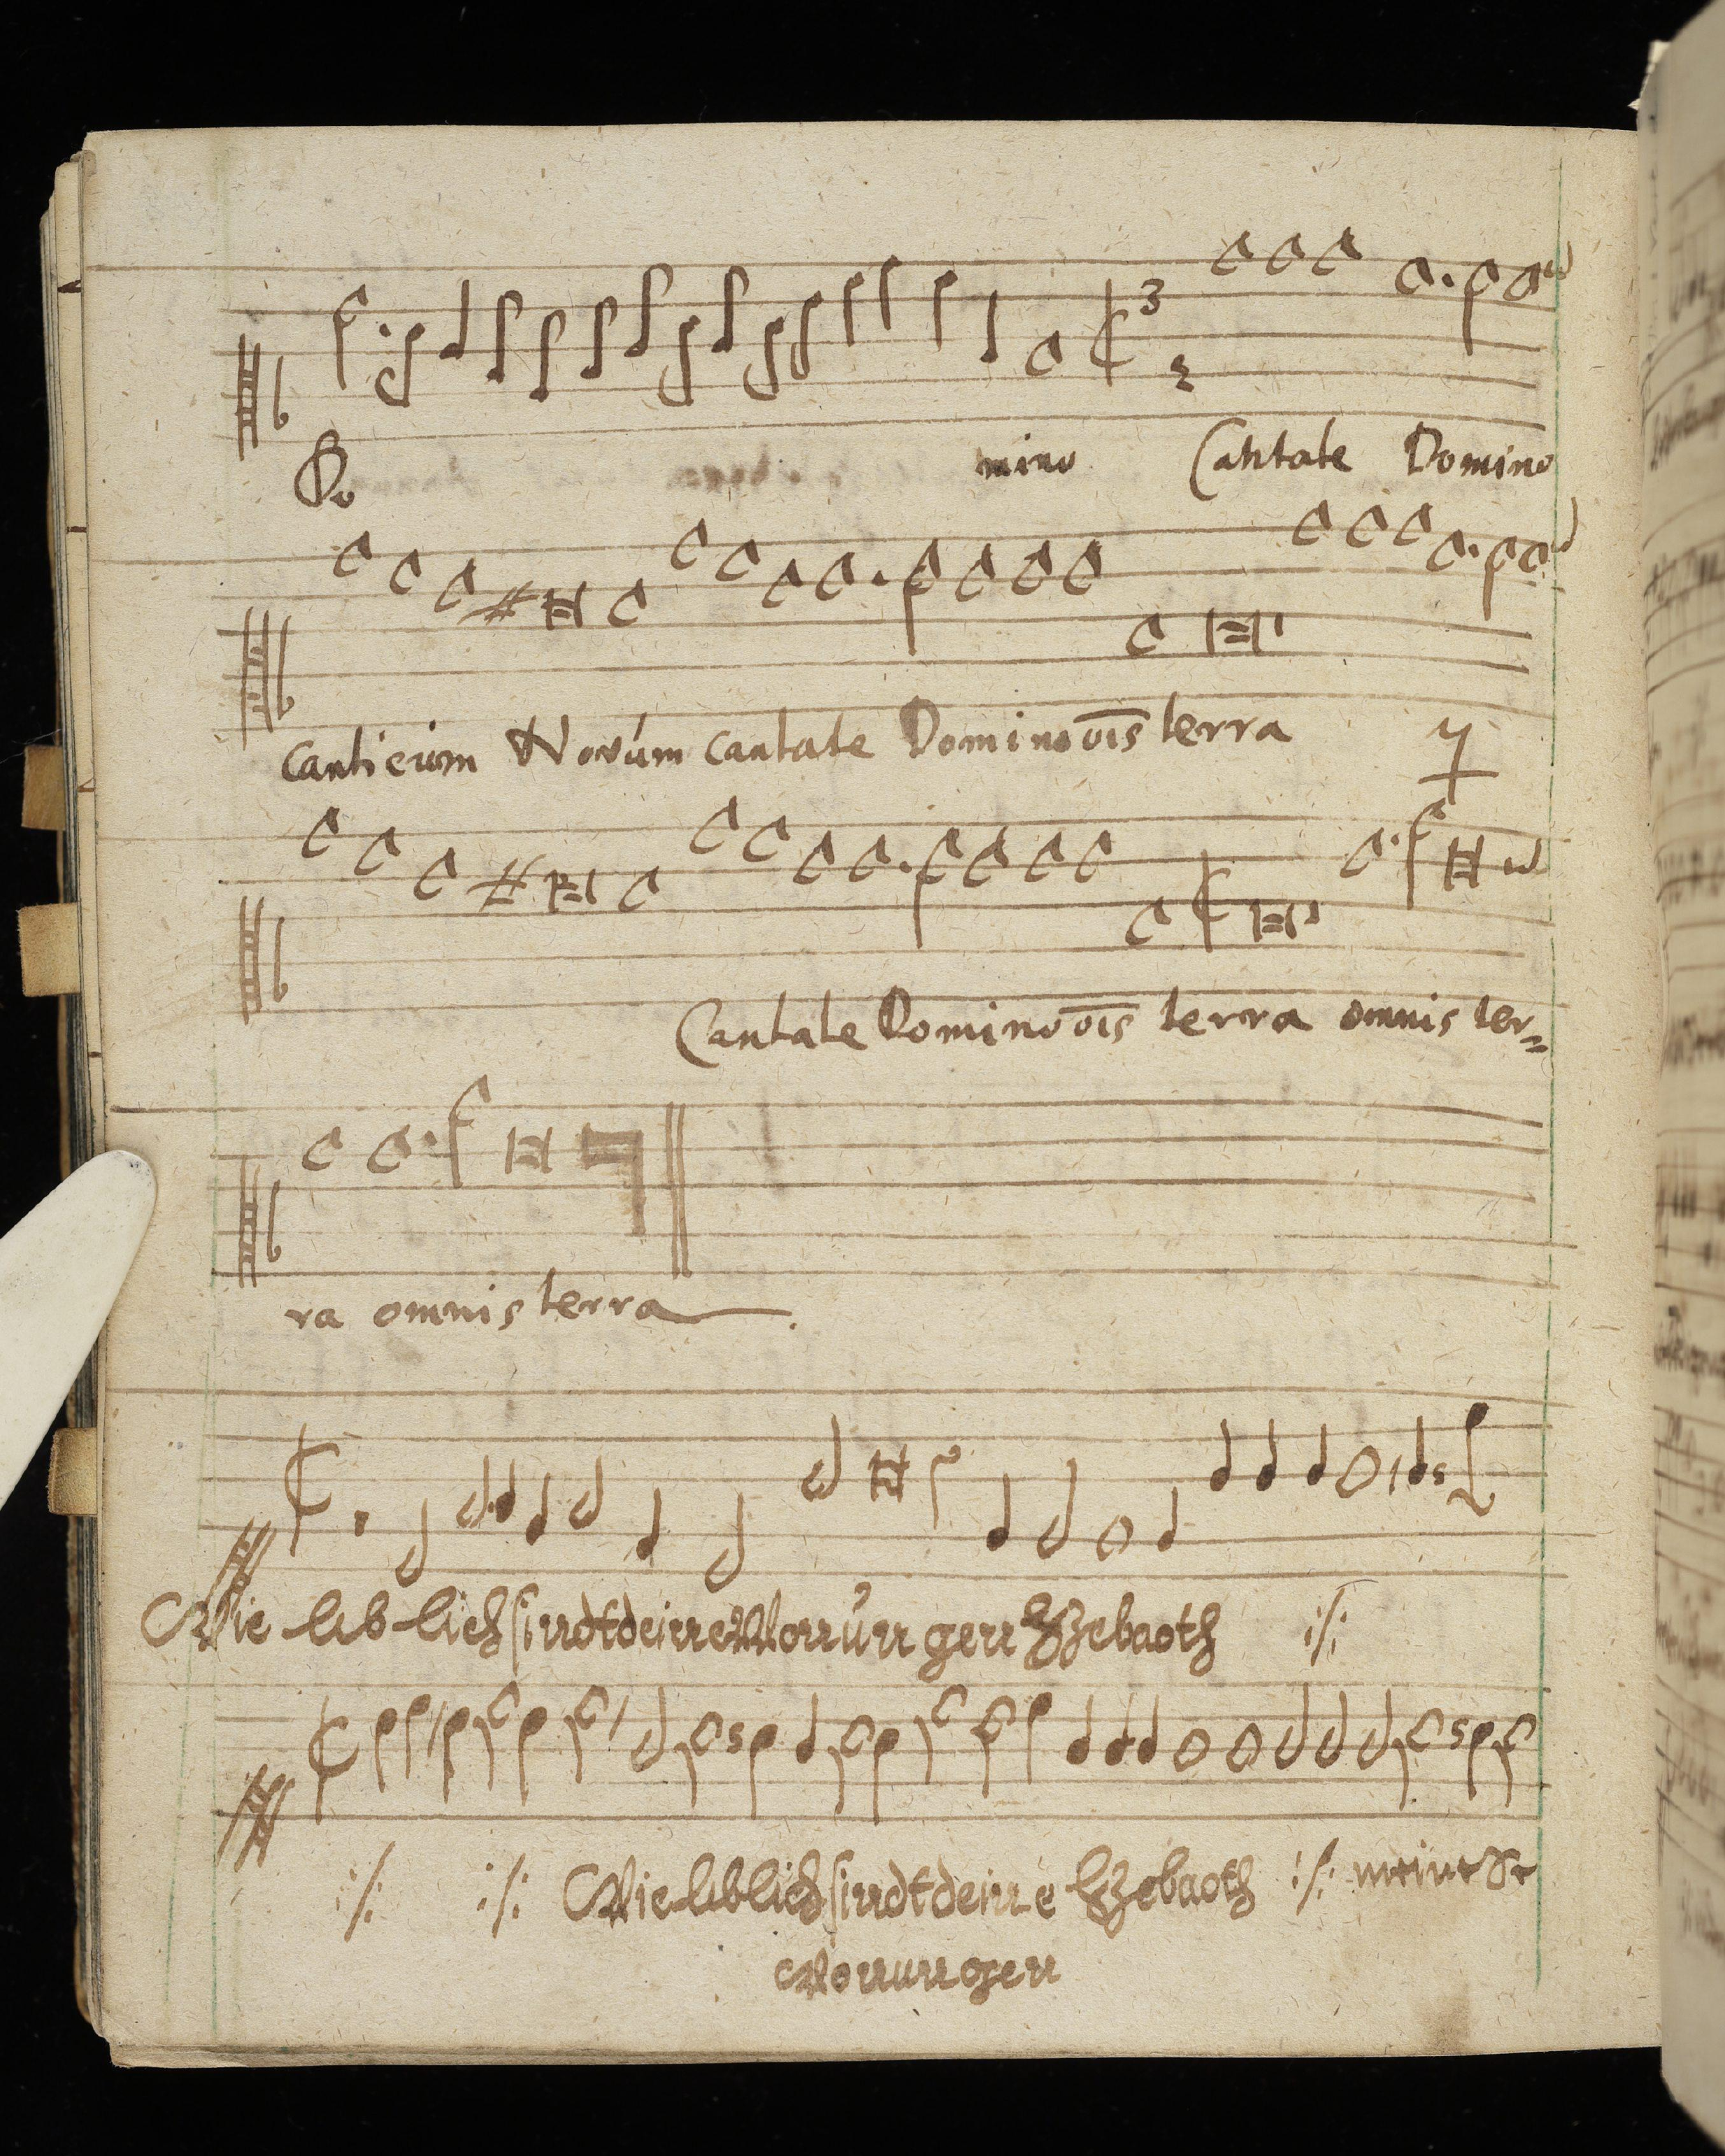 Do mino Cantate Domino
Canticum Novum cantate Domino oīs terra
Cantate Domino oīs terra omnis ter=
ra omnis terra.
Wie lib lich sindt deine Wonungen Zebaoth :/:
:/: :/: Wie liblich sindt deine Zebaoth :/: meine Se
Wonungen